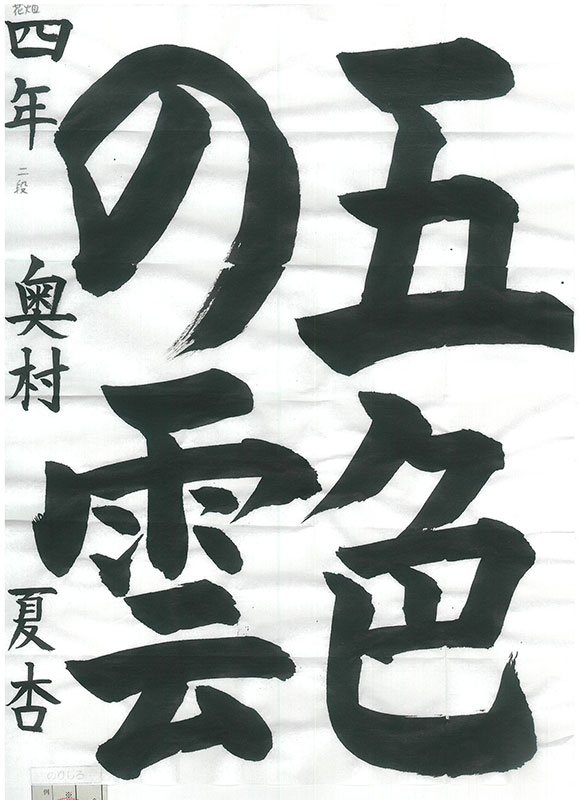 五色
の雲
花畑
四年 二段 奥村 夏杏
のりしろ
例 ※